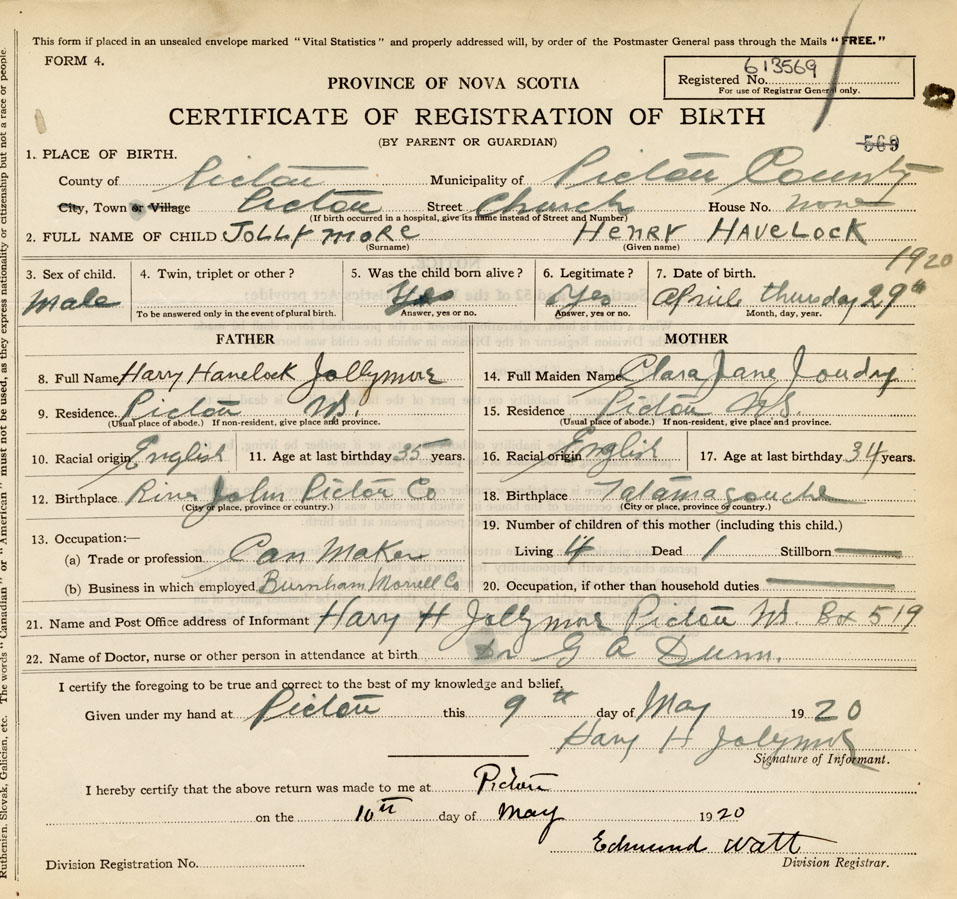 This form if placed in an unsealed envelope marked "Vital Statistics" and properly addressed will, by order of the Postmaster General pass through the Mails "FREE."
FORM 4.
Registered No. 613569
For use of Registrar General only.
PROVINCE OF NOVA SCOTIA
CERTIFICATE OF REGISTRATION OF BIRTH
(BY PARENT OR GUARDIAN)
569
1. PLACE OF BIRTH.
County of Pictou Municipality of Pictou County
City, Town or Village Pictou Street Church House No. none
(If birth occurred in a hospital, give its name instead of Street and Number)
2. FULL NAME OF CHILD JOLLYMORE HENRY HAVELOCK
(Surname) (Given name)
1920
3. Sex of child. 4. Twin, triplet or other? 5. Was the child born alive? 6. Legitimate? 7. Date of birth.
Male Yes Yes April thursday 29th
To be answered only in the event of plural birth. Answer, yes or no. Answer, yes or no. Month, day, year.
FATHER MOTHER
8. Full Name Harry Havelock Jollymore 14. Full Maiden Name Clara Jane Joudry
9. Residence Pictou NS. 15. Residence Pictou NS.
(Usual place of abode.) If non-resident, give place and province. (Usual place of abode.) If non-resident, give place and province.
10. Racial origin English 11. Age at last birthday 35 years. 16. Racial origin English 17. Age at last birthday 34 years.
12. Birthplace River John Pictou Co 18. Birthplace Tatamagouche
(City or place, province or country.) (City or place, province or country.)
13. Occupation:— 19. Number of children of this mother (including this child.)
(a) Trade or profession Can Maker Living 4 Dead 1 Stillborn
(b) Business in which employed Burnham Morrell Co 20. Occupation, if other than household duties
21. Name and Post Office address of Informant Harry H Jollymore Pictou NS. Box 519
22. Name of Doctor, nurse or other person in attendance at birth Dr G A Dunn.
I certify the foregoing to be true and correct to the best of my knowledge and belief,
Given under my hand at Pictou this 9th day of May 1920
Harry H Jollymore
Signature of Informant.
I hereby certify that the above return was made to me at Pictou
on the 10th day of May 1920
Edmund Watt
Division Registrar.
Division Registration No.
Ruthenian, Slovak, Galician, etc. The words "Canadian" or "American" must not be used, as they express nationality or citizenship but not a race or people.